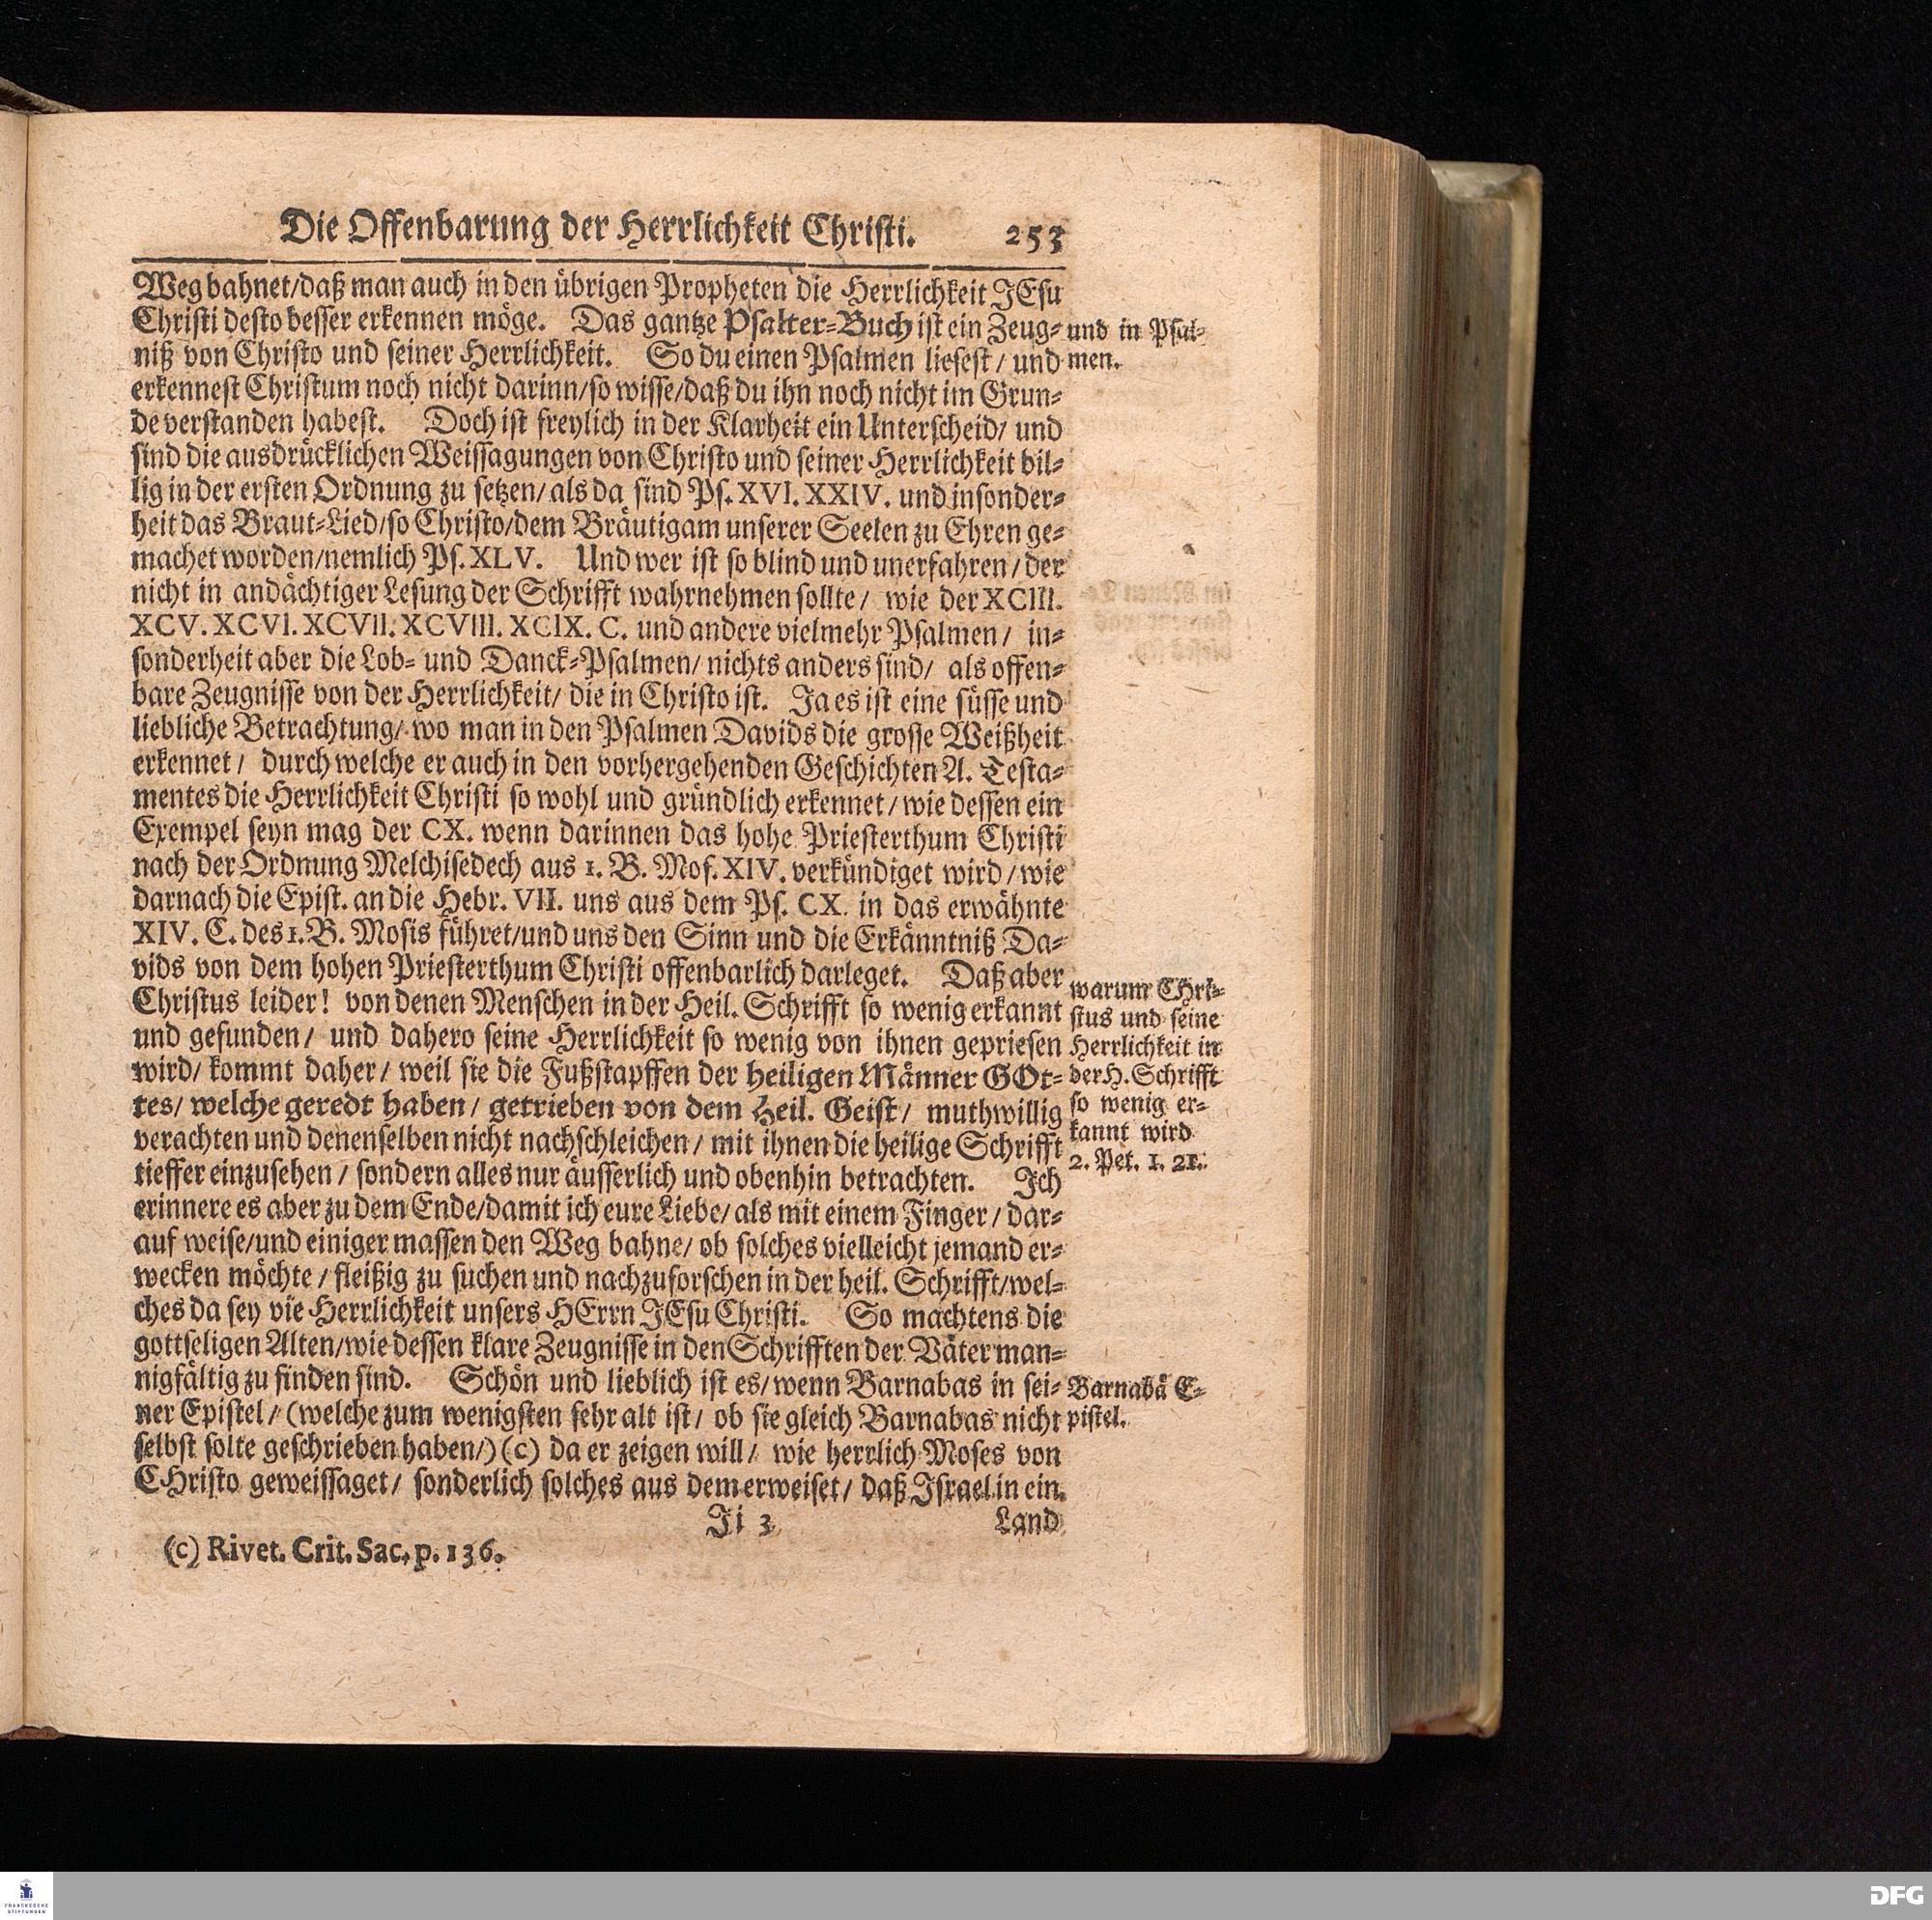 Die Offenbarung der Herrlichkeit Christi. 253
Weg bahnet/daß man auch in den übrigen Propheten die Herrlichkeit JEsu
Christi desto besser erkennen möge. Das gantze Psalter-Buch ist ein Zeug-
und in Psal-
niß von Christo und seiner Herrlichkeit. So du einen Psalmen liesest / und
men.
erkennest Christum noch nicht darinn/so wisse/daß du ihn noch nicht im Grun-
de verstanden habest. Doch ist freylich in der Klarheit ein Unterscheid/ und
sind die ausdrücklichen Weissagungen von Christo und seiner Herrlichkeit bil-
lig in der ersten Ordnung zu setzen/ als da sind Ps. XVI. XXIV. und insonder-
heit das Braut-Lied/so Christo/dem Bräutigam unserer Seelen zu Ehren ge-
machet worden/nemlich Ps. XLV. Und wer ist so blind und unerfahren / der
nicht in andächtiger Lesung der Schrifft wahrnehmen sollte / wie der XCIII.
XCV. XCVI. XCVII. XCVIII. XCIX. C. und andere vielmehr Psalmen / in-
sonderheit aber die Lob- und Danck-Psalmen/ nichts anders sind/ als offen-
bare Zeugnisse von der Herrlichkeit/ die in Christo ist. Ja es ist eine süsse und
liebliche Betrachtung/ wo man in den Psalmen Davids die grosse Weißheit
erkennet / durch welche er auch in den vorhergehenden Geschichten A. Testa-
mentes die Herrlichkeit Christi so wohl und gründlich erkennet / wie dessen ein
Exempel seyn mag der CX. wenn darinnen das hohe Priesterthum Christi
nach der Ordnung Melchisedech aus 1. B. Mos. XIV. verkündiget wird / wie
darnach die Epist. an die Hebr. VII. uns aus dem Ps. CX. in das erwähnte
XIV. C. des 1. B. Mosis führet/und uns den Sinn und die Erkänntniß Da-
vids von dem hohen Priesterthum Christi offenbarlich darleget. Daß aber
Christus leider! von denen Menschen in der Heil. Schrifft so wenig erkannt
und gefunden / und dahero seine Herrlichkeit so wenig von ihnen gepriesen
wird/ kommt daher / weil sie die Fußstapffen der heiligen Männer GOt-
tes/ welche geredt haben / getrieben von dem Heil. Geist / muthwillig
verachten und denenselben nicht nachschleichen / mit ihnen die heilige Schrifft
tieffer einzusehen / sondern alles nur äusserlich und obenhin betrachten. Ich
warum Chri-
stus und seine
Herrlichkeit in
der H. Schrifft
so wenig er-
kannt wird
2. Pet. 1. 21.
erinnere es aber zu dem Ende/damit ich eure Liebe/ als mit einem Finger / dar-
auf weise/und einiger massen den Weg bahne/ ob solches vielleicht jemand er-
wecken möchte / fleißig zu suchen und nachzuforschen in der heil. Schrifft/wel-
ches da sey vie Herrlichkeit unsers HErrn JEsu Christi. So machtens die
gottseligen Alten/wie dessen klare Zeugnisse in den Schrifften der Väter man-
nigfältig zu finden sind. Schön und lieblich ist es/ wenn Barnabas in sei-
Barnabä E-
ner Epistel / (welche zum wenigsten sehr alt ist/ ob sie gleich Barnabas nicht
pistel.
selbst solte geschrieben haben/) (c) da er zeigen will / wie herrlich Moses von
CHristo geweissaget / sonderlich solches aus dem erweiset / daß Israel in ein
Ji 3 Land
(c) Rivet. Crit. Sac. p. 136.
FRANCKESCHE
STIFTUNGEN
DFG